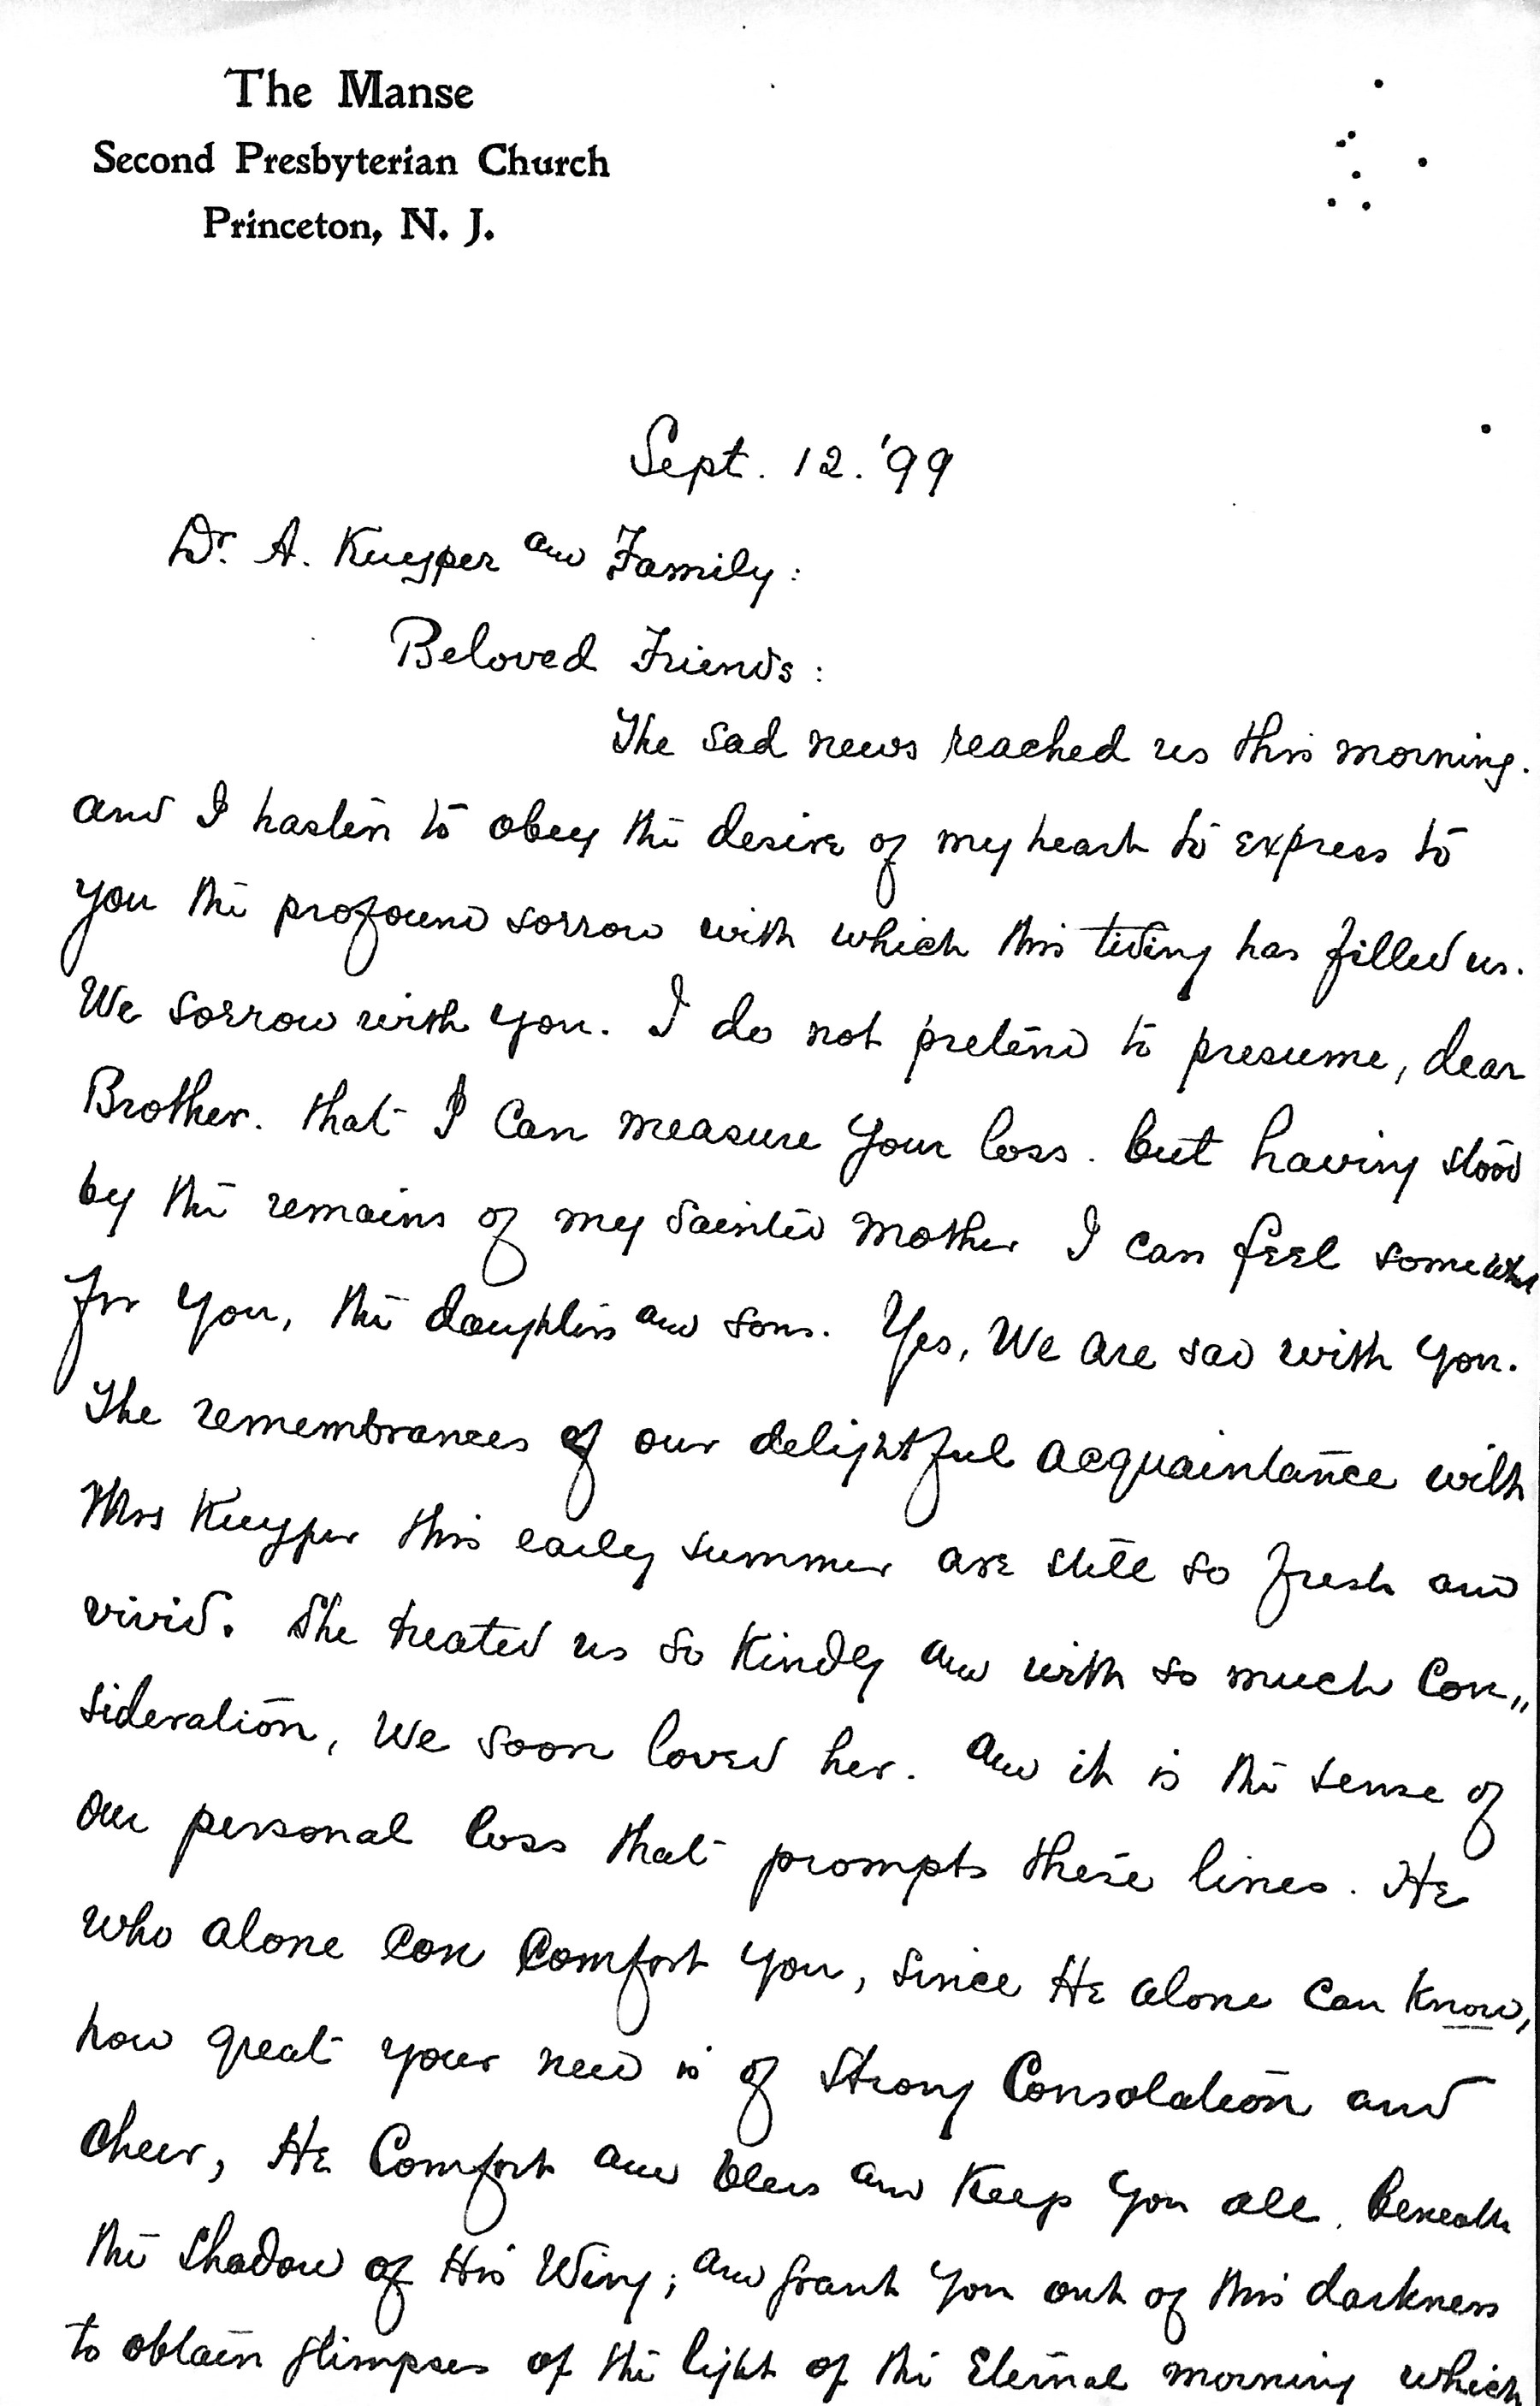 The Manse
Second Presbyterian Church
Princeton, N. J.
Sept. 12. '99
Dr. A. Kuyper and Family:
Beloved Friends:
The sad news reached us this morning.
and I hasten to obey the desire of my heart to express to
you the profound sorrow with which this tiding has filled us.
We sorrow with you. I do not pretend to presume, dear
Brother. that I can measure your loss. but having stood
by the remains of my sainted mother I can feel somewhat
for you, the daughters and sons. Yes, We are sad with you.
The remembrances of our delightful acquaintance with
Mrs Kuyper this early summer are still so fresh and
vivid. She treated us so kindly and with so much con„
sideration, We soon loved her. And it is the sense of
our personal loss that prompts these lines. He
who alone can comfort you, since He alone can know,
how great your need is of strong Consolation and
cheer, He Comfort and bless and keep you all, beneath
the shadow of His Wing; and grant you out of this darkness
to obtain glimpses of the light of the Eternal morning which